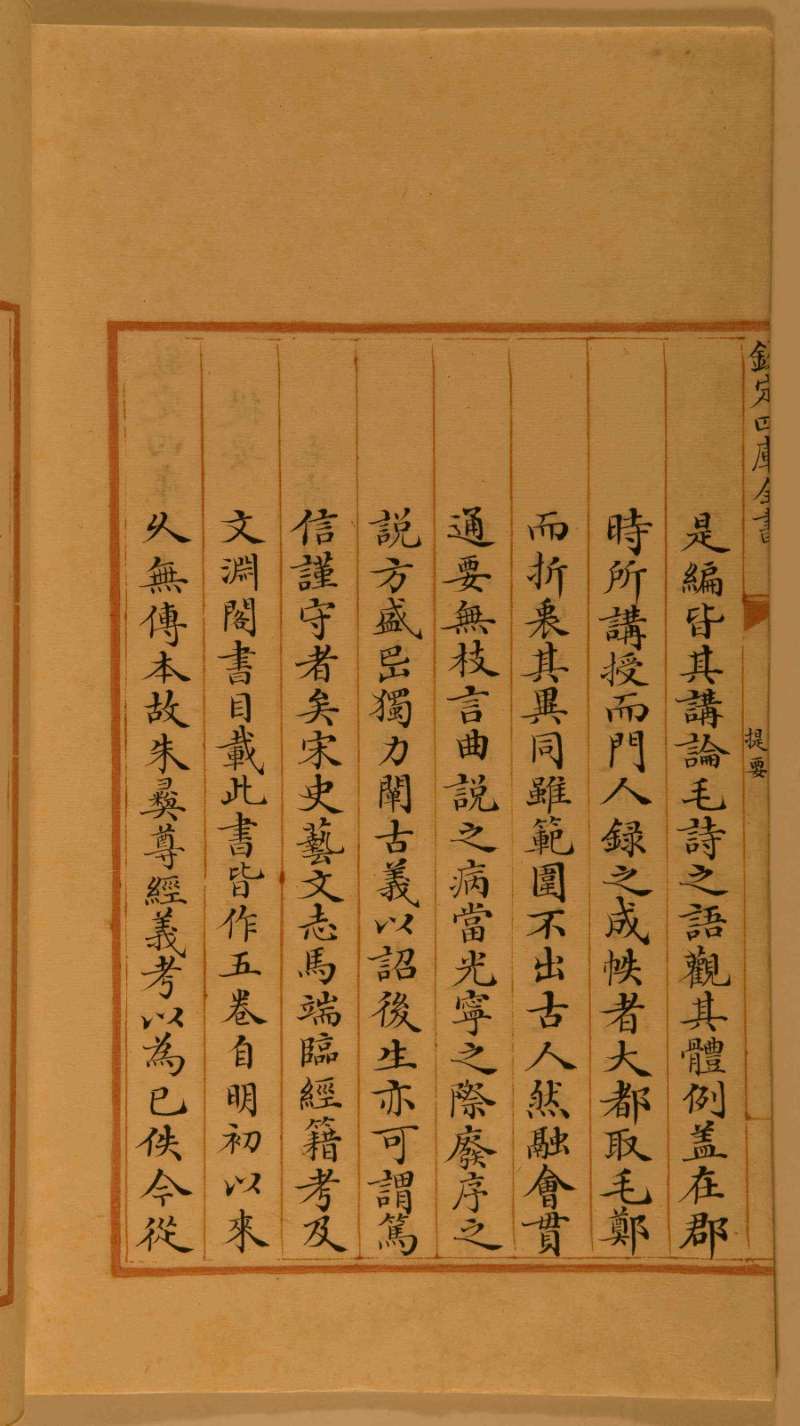 欽定四庫全書
提要
是編皆其講論毛詩之語觀其體例盖在郡
時所講授而門人録之成帙者大都取毛鄭
而折衷其異同雖範圍不出古人然融會貫
通要無枝言曲説之病當光寧之際廢序之
説方盛嵒獨力闡古義以詔後生亦可謂篤
信謹守者矣宋史藝文志馬端臨經籍考及
文淵閣書目載此書皆作五卷自明初以來
久無傳本故朱彛尊經義考以為已佚今從